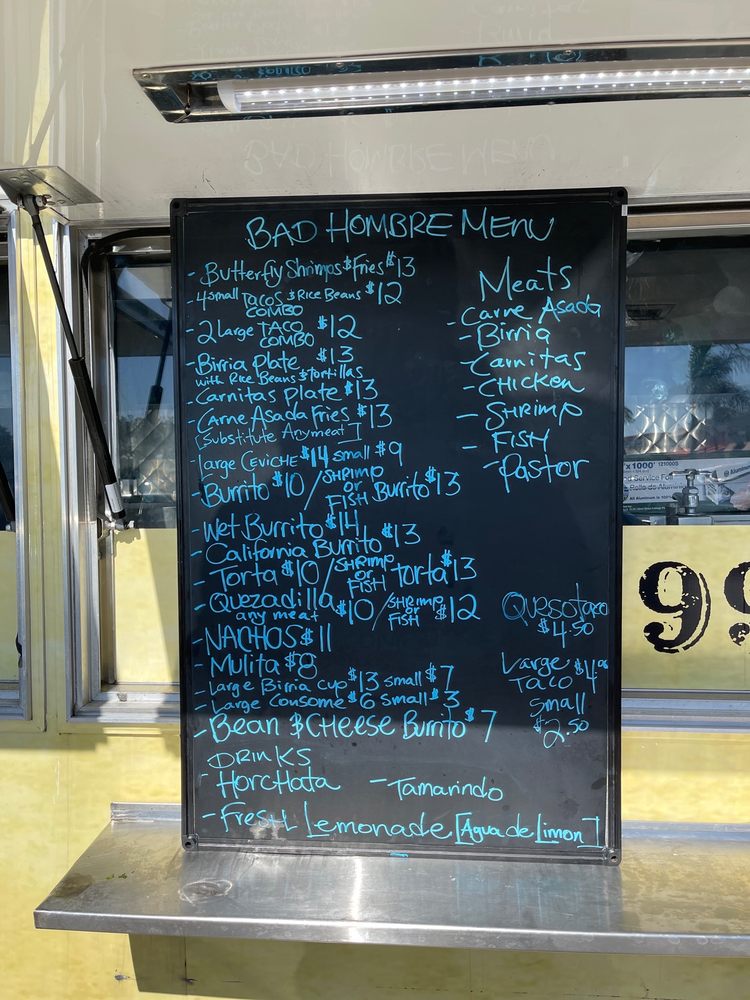 BAD HOMBRE MENU
- Butterfly Shrimps & Fries $13
- 4 small TACOS & Rice Beans $12
COMBO
- 2 Large TACO $12
COMBO
- Birria Plate $13
with Rice Beans & tortillas
- Carnitas Plate $13
- Carne Asada Fries $13
[Substitute Any meat]
large CEVICHE $14 small $9
- Burrito $10 / SHRIMP or FISH Burrito $13
- Wet Burrito $14
- California Burrito $13
- Torta $10 / SHRIMP or FISH torta $13
- Quezadilla $10 / SHRIMP or FISH $12
any meat
- NACHOS $11
- Mulita $8
- Large Birria cup $13 small $7
- Large Consome $6 small $3
- Bean & CHeese Burrito $7
Meats
- Carne Asada
- Birria
- Carnitas
- CHicken
- SHRIMP
- FISH
- Pastor
Quesotaco
$4.50
Large $4.00
TACO
small
$2.50
DRINKS
- HorcHata - Tamarindo
- Fresh Lemonade [Agua de Limon]
x 1000'
Service Foil
Rollo de Aluminio
99